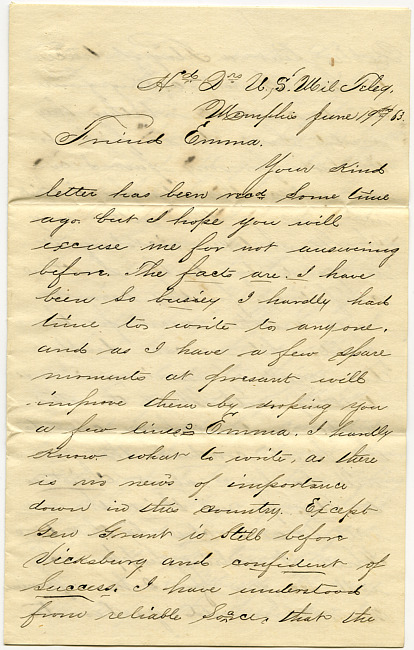 Hd Qrs U,S, Mil Teleg.
Memphis June 19th/63.
Friend Emma.
Your kind
letter has been recd some time
ago. but I hope you will
excuse me for not answering
before. The facts are. I have
been so buisey I hardly had
time to write to anyone.
and as I have a few spare
moments at present will
improve them by droping you
a few lines. Emma. I hardly
know what to write, as there
is no news of importance
down in this country. Except
Gen Grant is still before
Vicksburg and confident of
Success. I have understood
from reliable that the